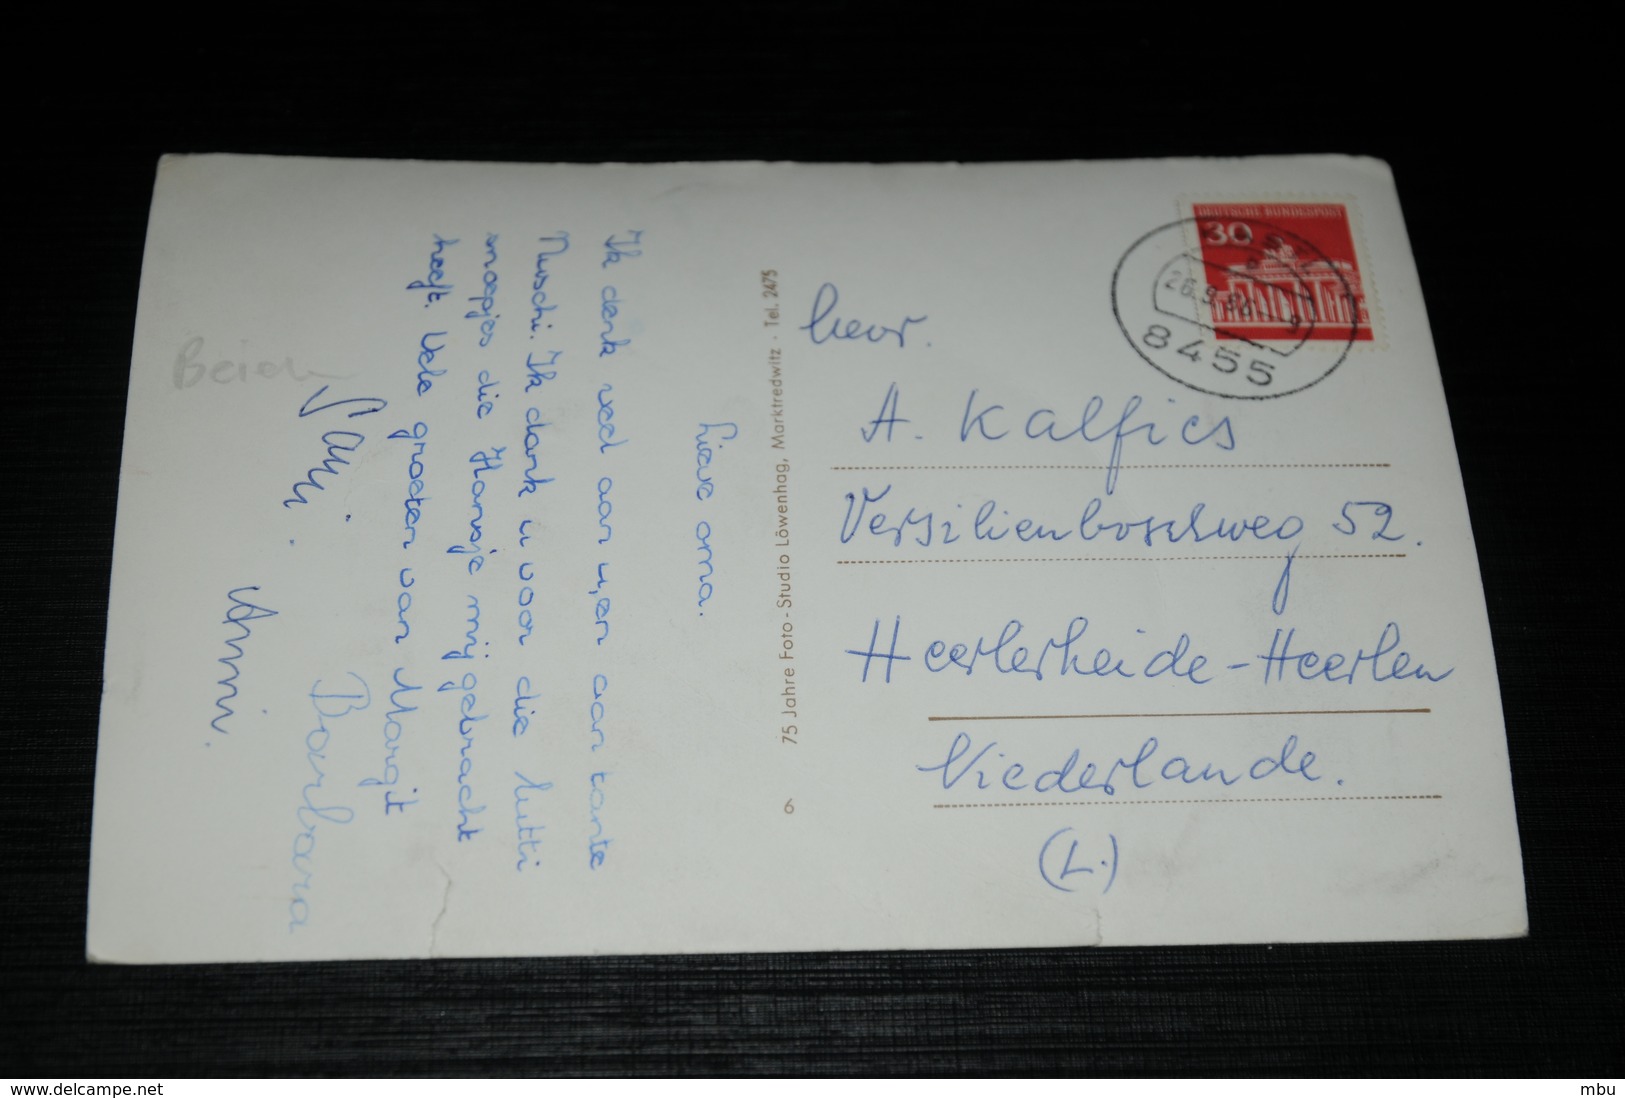 Lieve oma.
Ik denk veel aan u, en aan tante
Nuschi. Ik dank u voor die lutti
snoepjes die Hansje mij gebracht
heeft. Vele groeten van Margit
Barbara
75 Jahre Foto-Studio Löwenhag, Marktredwitz · Tel. 2475
6
DEUTSCHE BUNDESPOST
30
8455
A. Kalfics
Versilienboschweg 52.
Heerlerheide-Heerlen
Niederlande.
(L.)
www.delcampe.net
mbu